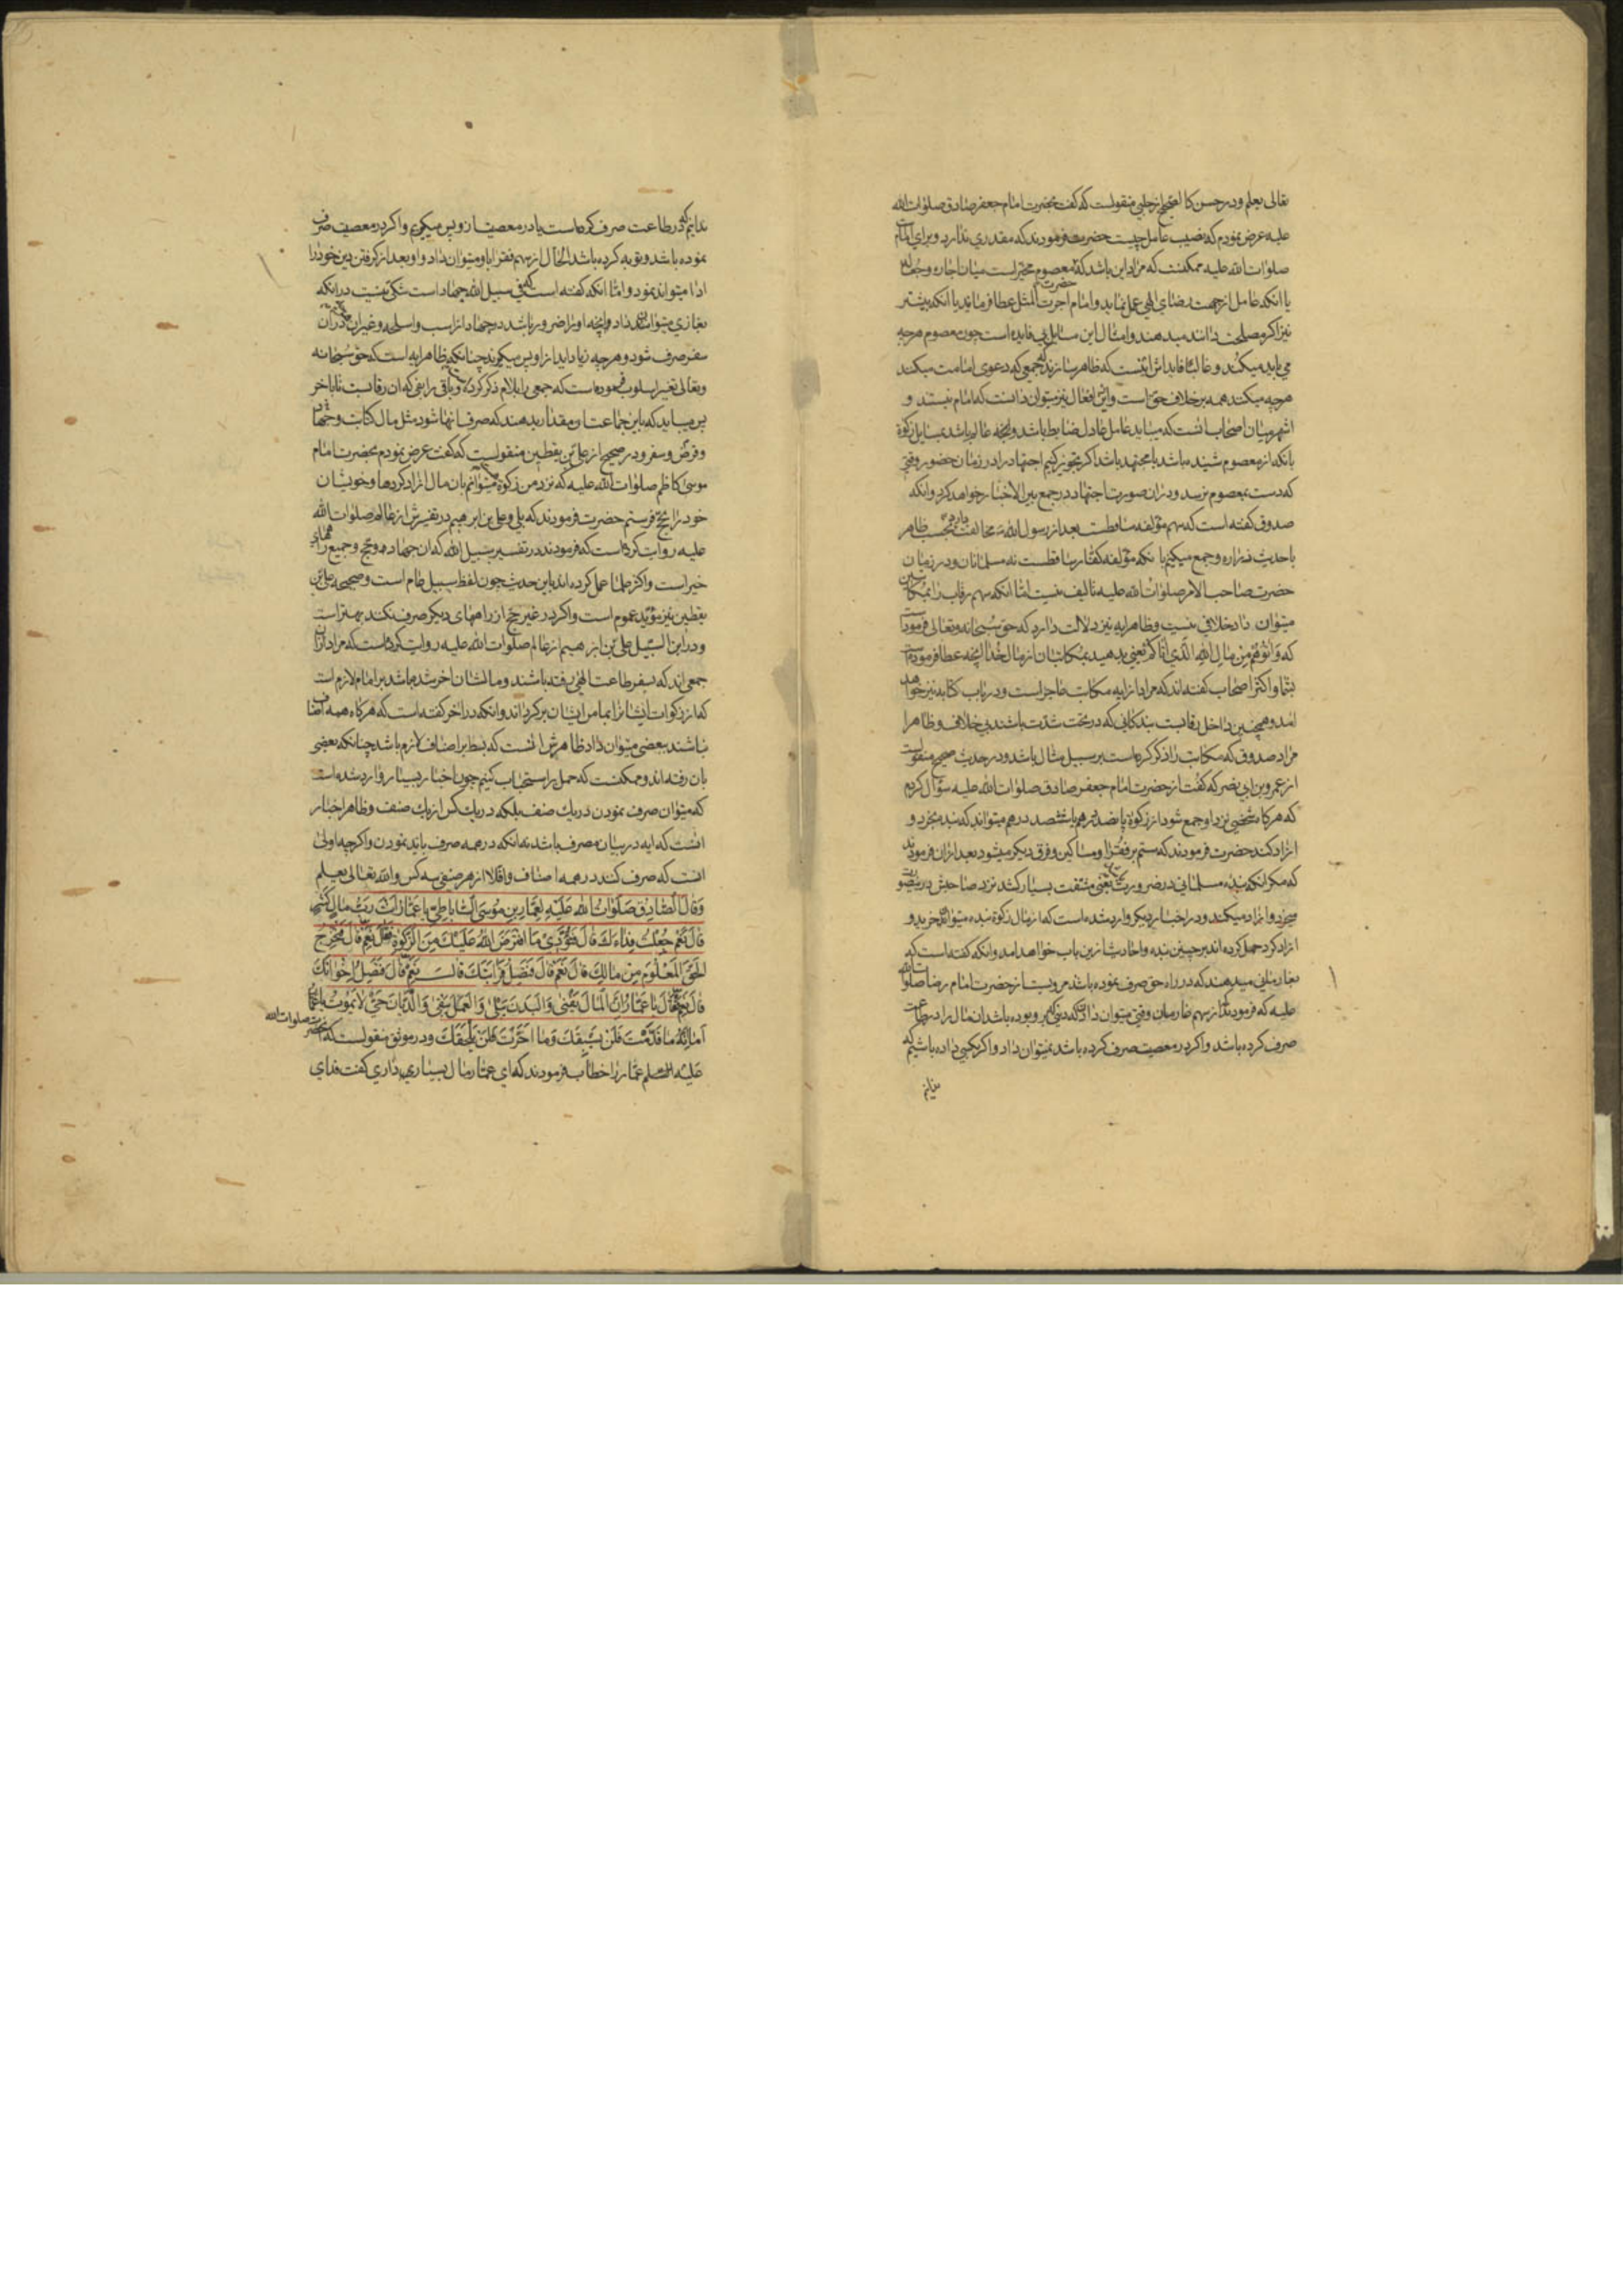 تعالی یعلم و در حسن کالصحیح از حلبی منقولست که گفت بحضرت امام جعفر صادق صلوات الله
علیه عرض نمودم که نصیب عامل چیست حضرت فرمودند که مقدری ندارد و برای امام
صلوات الله علیه ممکنست که مراد این باشد که معصوم مخیر است میان اجاره و جعاله
یا انکه عامل از جهت رضای الهی عمل نماید و امام حضرت اجرت المثل عطا فرمایند یا انکه بیشتر
نیز اکر مصلحت دانند میدهند و امثال این مسایل بی فایده است چون معصوم هرچه
می باید میکند و غالبا فایده اش اینست که ظاهر سازند که جمعی که دعوی امامت میکنند
هرچه میکنند همه بر خلاف حق است و ازین افعال نیز میتوان دانست که امام نیستند و
اشهر میان اصحاب انست که میباید عامل عادل ضابط باشد و عالم باشد بمسایل زکوة
بانکه از معصوم شنیده باشد یا مجتهد باشد اکر تجویز کنیم اجتهاد را در زمان حضور وقتی
که دست بمعصوم نرسد و دران صورت اجتهاد در جمع بین الاخبار خواهد کرد و انکه
صدوق گفته است که سهم مؤلفه ساقطست بعد از رسول الله ص مخالفت دارد بحسب ظاهر
با حدیث زراره و جمع میکنیم بانکه مؤلفه کفار ساقطست نه مسلمانان و در زمان
حضرت صاحب الامر صلوات الله علیه تالیف نیست اما انکه سهم رقاب را بمکاتبین
میتوان داد خلافی نیست و ظاهر ایه نیز دلالت دارد که حق سبحانه و تعالی فرموده است
که وَآتُوهُمْ مِنْ مَالِ اللهِ الَّذِی آتَاکُمْ یعنی بدهید بمکاتبان از مال خدا انچه عطا فرموده است
بشما و اکثر اصحاب گفته اند که مراد از ایه مکاتب عاجز است و در باب کتابه نیز خواهد
امد و همچنین داخل رقابست بندکانی که در تحت شدت باشند بی خلاف و ظاهرا
مراد صدوق که مکاتب را ذکر کرده است بر سبیل مثال باشد و در حدیث صحیح منقولست
از عمرو بن ابی نصر که گفت از حضرت امام جعفر صادق صلوات الله علیه سؤال کردم
که هرکاه شخصی نزد او جمع شود از زکوة پانصد درهم یا ششصد درهم میتواند که بنده بخرد و
ازاد کند حضرت فرمودند که ستم بر فقرا و مساکین و فرق دیکر میشود بعد از ان فرمودند
که مکر انکه بنده مسلمانی در ضرورت باشد یعنی مشقت بسیار کشد نزد صاحبش درینصورت
میخرد و ازاد میکند و در اخبار دیکر وارد شده است که از مال زکوة بنده میتواند خرید و
ازاد کرد حمل کرده اند بر چنین بنده و احادیث ازین باب خواهد امد و انکه گفته است که
بغارمانی میدهند که در راه حق صرف نموده باشد مرویست از حضرت امام رضا صلوات الله
علیه که فرمودند که از سهم غارمان وقتی میتوان داد که بوده باشد ان مال را در طاعت
صرف کرده باشد و اکر در معصیت صرف کرده باشد نمیتوان داد و اکر بکسی داده باشیم که
ندانیم
ندانیم که در طاعت صرف کرده است یا در معصیت از و پس میکیریم و اکر در معصیت صرف
نموده باشد و توبه کرده باشد الحال از سهم فقرا باو میتوان داد و او بعد از کرفتن دین خود را
ادا میتواند نمود و اما انکه گفته است که فی سبیل الله جهاد است شکی نیست در انکه
بغازی میتوان داد و انچه او را ضرور باشد در جهاد از اسب و اسلحه و غیر ان که دران
سفر صرف شود و هرچه زیاد اید از او پس میکیرند چنانکه ظاهر ایه است که حق سبحانه
و تعالی تغییر اسلوب فرموده است که جمعی را بلام ذکر کرده و باقی را بفی که ان رقابست تا باخر
پس میباید که باین جماعت ان مقدار بدهند که صرف انها شود مثل مال کتابت و جهاد
و قرض و سفر و در صحیح از علی بن یقطین منقولست که گفت عرض نمودم بحضرت امام
موسی کاظم صلوات الله علیه که نزد من زکوة میتوانم بان مال ازاد کردها و خویشان
خود را بحج فرستم حضرت فرمودند که بلی و علی بن ابرهیم در تفسیرش از عالم صلوات الله
علیه روایت کرده است که فرمودند در تفسیر سبیل الله که ان جهاد و حج و جمیع راههای
خیر است و اکثر علما عمل کرده اند باین حدیث چون لفظ سبیل عام است و صحیحه علی بن
یقطین نیز مؤید عموم است و اکر در غیر حج از راههای دیکر صرف نکنند بهتر است
و در ابن السبیل علی بن ابرهیم از عالم صلوات الله علیه روایت کرده است که مراد ازان
جمعی اند که بسفر طاعت الهی رفته باشند و مالشان اخر شده باشد بر امام لازم است
که از زکوات ایشانرا بمامن ایشان برکرداند و انکه در اخر گفته است که هرکاه همه اصناف
نباشند ببعضی میتوان داد ظاهرش انست که بسط بر اصناف لازم باشد چنانکه بعضی
بان رفته اند و ممکنست که حمل بر استحباب کنیم چون اخبار بسیار وارد شده است
که میتوان صرف نمودن در یک صنف بلکه در یک کس از یک صنف و ظاهر اخبار
انست که ایه در بیان مصرف باشد نه انکه در همه صرف باید نمودن و اکرچه اولی
انست که صرف کنند در همه اصناف و اقلا از هر صنفی سه کس والله تعالی یعلم
وَقَالَ الصَّادِقُ صَلَوَاتُ اللهِ عَلَیْهِ لِعَمَّارِ بنِ مُوسَی السَّابَاطِیِّ یَا عَمَّارُ اَنْتَ رَبُّ مَالٍ کَثِیرٍ
قَالَ نَعَمْ جُعِلْتُ فِدَاءَکَ قَالَ فَتُؤَدِّیَ مَا افْتَرَضَ اللهُ عَلَیْکَ مِنَ الزَّکَوةِ فَقَالَ نَعَمْ قَالَ فَتُخْرِجُ
الْحَقَّ الْمَعْلُومَ مِنْ مَالِکَ قَالَ نَعَمْ قَالَ فَتَصِلُ قَرَابَتَکَ قَالَ نَعَمْ قَالَ فَتَصِلُ اِخْوَانَکَ
قَالَ نَعَمْ فَقَالَ یَا عَمَّارُ اِنَّ الْمَالَ یَفْنَی وَالْبَدَنَ یَبْلَی وَالْعَمَلَ یَبْقَی وَالدَّیَّانَ حَیٌّ لَا یَمُوتُ یَا عَمَّارُ
اَمَا اِنَّهُ مَا قَدَّمْتَ فَلَنْ یَسْبِقَکَ وَمَا اَخَّرْتَ فَلَنْ یَلْحَقَکَ و در موثق منقولست که حضرت صلوات الله
علیه عمار را خطاب فرمودند که ای عمار مال بسیاری داری گفت فدای